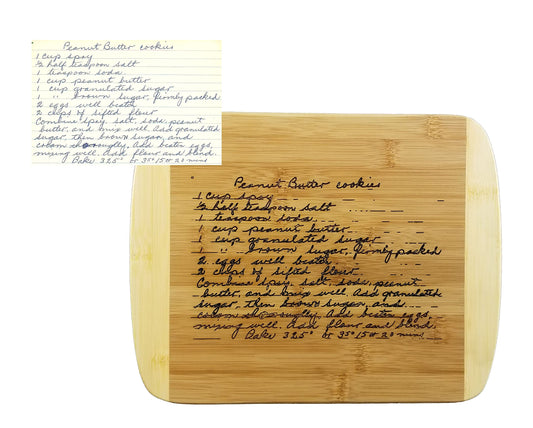 Peanut Butter cookies
1 cup spry
½ half teaspoon salt
1 teaspoon soda
1 cup peanut butter
1 cup granulated sugar
1 " brown sugar, firmly packed
2 eggs well beaten
2 cups of sifted flour
Combine spry, salt, soda, peanut
butter, and mix well. Add granulated
sugar, then brown sugar, and
cream thoroughly. Add beaten eggs,
mixing well. Add flour and blend.
Bake 325° or 350 15 or 20 mins
Peanut Butter cookies
1 cup spry
½ half teaspoon salt
1 teaspoon soda
1 cup peanut butter
1 cup granulated sugar
1 " brown sugar, firmly packed
2 eggs well beaten
2 cups of sifted flour
Combine spry, salt, soda, peanut
butter, and mix well. Add granulated
sugar, then brown sugar, and
cream thoroughly. Add beaten eggs,
mixing well. Add flour and blend.
Bake 325° or 350 15 or 20 mins